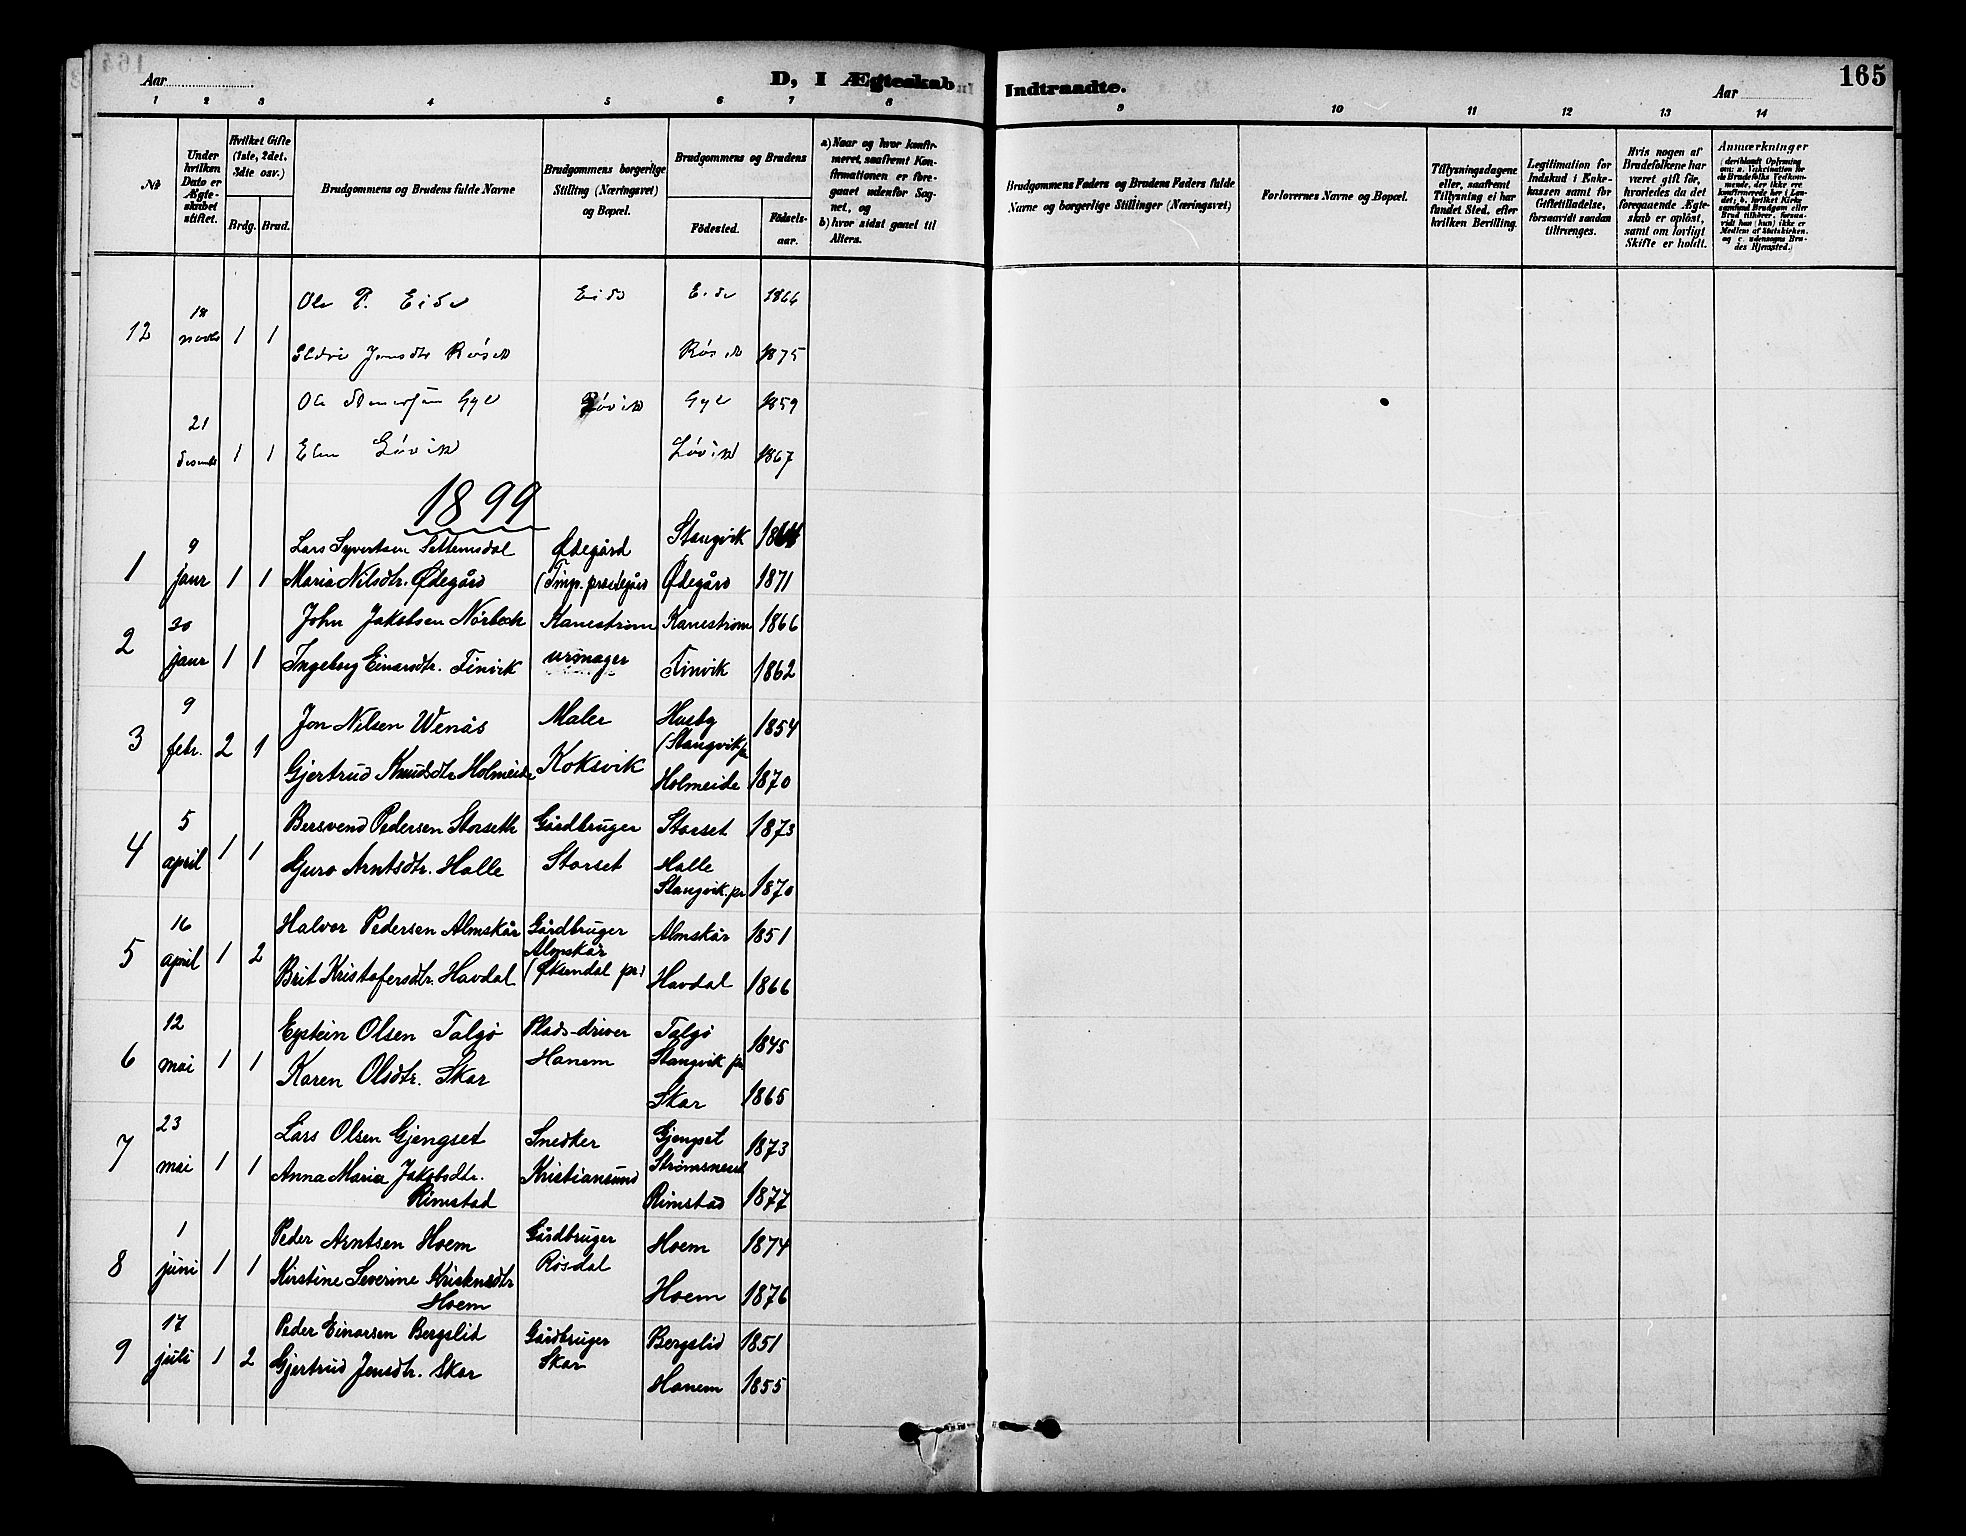 165
Aar
D, I Ægteskab
Indtraadte.
Aar
1 2 3 4 5 6 7 8 9 10 11 12 13 14
No
Under hvilken Dato er Ægteskabet stiftet.
Hvilket Gifte (1ste, 2det. 3die osv.)
Brdg. Brud.
Brudgommens og Brudens fulde Navne
Brudgommens borgerlige Stilling (Næringsvei) og Bopæl.
Brudgommens og Brudens
Födested.
Födsels-aar.
a) Naar og hvor konfirmeret, saafremt Konfirmationen er foregaaet udenfor Sognet, og
b) hvor sidst gaaet til Alters.
Brudgommens Faders og Brudens Faders fulde Navne og borgerlige Stillinger (Næringsvei)
Forlovernes Navne og Bopæl.
Tillysningsdagene eller, saafremt Tillysning ei har fundet Sted, efter hvilken Bevilling.
Legitimation for Indskud i Enkekassen samt for Giftetilladelse, forsaavidt saadan tiltrænges.
Hvis nogen af Brudefolkene har været gift för, hvorledes da det foregaaende Ægteskab er oplöst, samt om lovligt Skifte er holdt.
Anmærkninger
12 18 1 1
Ole P. Eide Eide 1864
Jonsdtr 1875
21 1 1
Ole Gyl Løvik Gyl 1859
Løvik Løvik 1867
1899
1 9 janr 1 1
Lars Syvertsen Settemsdal Ødegård Stangvik
Maria Nilsdtr. Ødegård Ødegård 1871
2 30 janr 1 1
John Jakobsen Norbeck Kanestrøm Kanestrøm 1866
Ingeborg Einarsdtr. Tinvik urmager Tinvik 1862
3 9 febr. 2 1
Jon Nilsen Wenås Maler Husby (Stangvik pr 1854
Gjertrud Knudsdtr Holmeide Koksvik Holmeide 1870
4 5 april 1 1
Bersvend Pedersen Storseth Gårdbruger Storset 1873
Guro Arntsdtr. Halle Storset Halle Stangvik. pr 1870
5 16 april 1 2
Halvor Pedersen Almskår Gårdbruger Almskår 1851
Almskår
Brit Kristofersdtr. Havdal (Øksendal pr.) Havdal 1866
6 12 mai 1 1
Eystein Olsen Talgø Plads-driver Talgø 1845
Karen Olsdtr. Skar Hanem Stangvik pr
Skar 1865
7 23 mai 1 1
Lars Olsen Gjengset Snedker Gjengset 1873
Anna Maria Jakobsdtr. Kristiansund
Rimstad Rimstad 1877
8 1 juni 1 1
Peder Arntsen Hoem Gårdbruger Hoem 1874
Røsdal
Kirstine Severine
Hoem Hoem 1876
9 17 juli 1 2
Peder Einarsen Bergslid Gårdbruger Bergslid 1851
Gjertrud Jensdtr. Skar Skar Hanem 1855